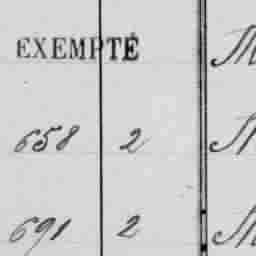 EXEMPTÉ
658 2
691 2